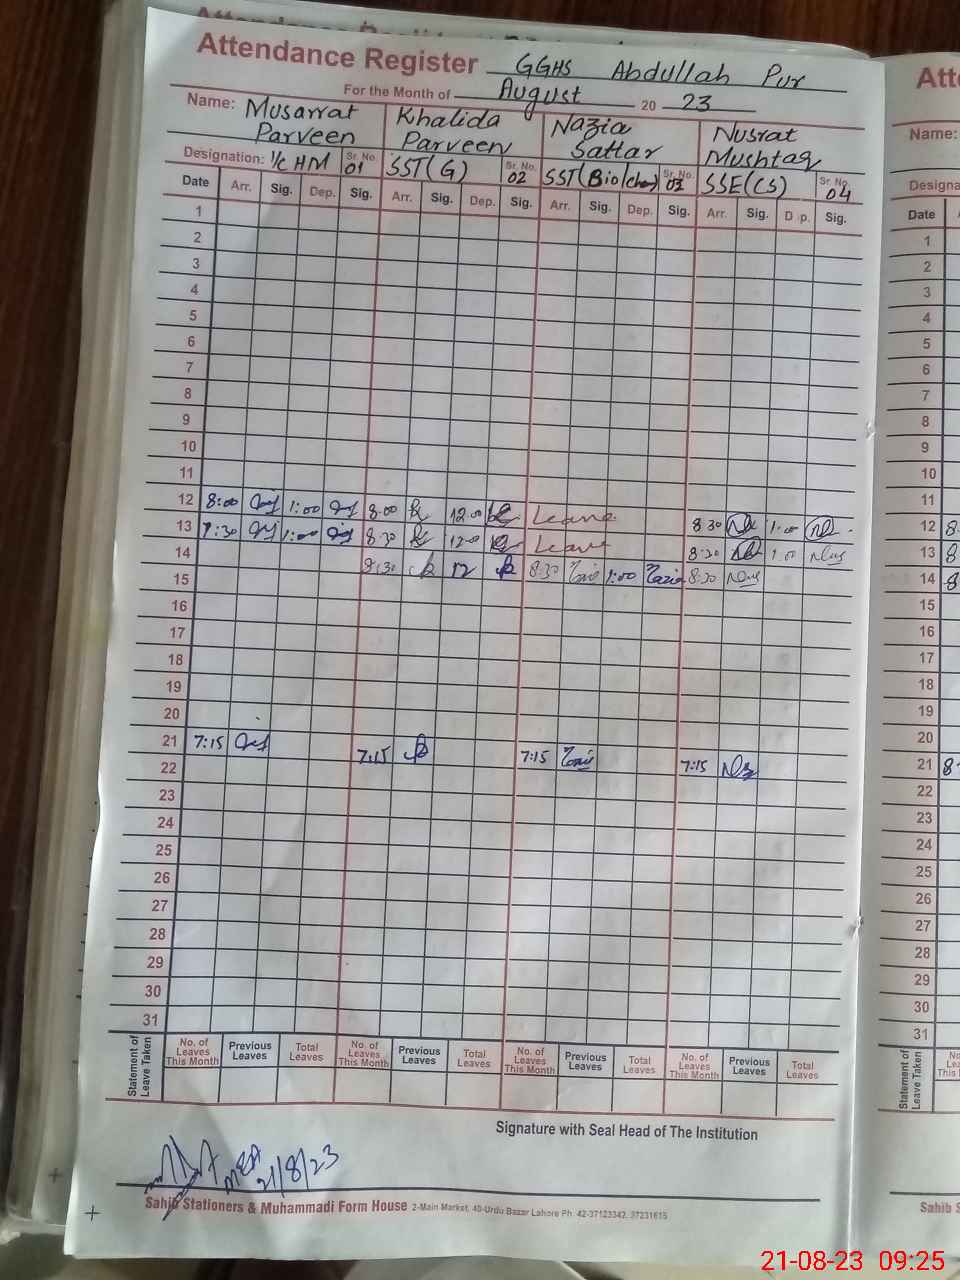 Attendance Register GGHS Abdullah Pur
For the Month of August 20 23
Name: Musarrat Parveen Khalida Parveen Nazia Sattar Nusrat Mushtaq
Designation: I/C HM Sr. No. 01 SST(G) Sr. No. 02 SST(Bio/che) Sr. No. 03 SSE(CS) Sr. No. 04
Date Arr. Sig. Dep. Sig. Arr. Sig. Dep. Sig. Arr. Sig. Dep. Sig. Arr. Sig. D p. Sig.
1
2
3
4
5
6
7
8
9
10
11
12 8:00 1:00 8.00 12.00 Leave 8 30 1:00
13 7:30 1:00 8:30 12.0 Leave 8:30 1.00
14 8:30 12 8:30 1:00 8:30
15
16
17
18
19
20
21 7:15 7:15 7:15 7:15
22
23
24
25
26
27
28
29
30
31
Statement of Leave Taken
No. of Leaves This Month Previous Leaves Total Leaves No. of Leaves This Month Previous Leaves Total Leaves No. of Leaves This Month Previous Leaves Total Leaves No. of Leaves This Month Previous Leaves Total Leaves
Signature with Seal Head of The Institution
MEA
21/8/23
Sahib Stationers & Muhammadi Form House 2-Main Market, 40-Urdu Bazar Lahore Ph: 42-37123342, 37231615
Att
Name:
Designa
Date A
1
2
3
4
5
6
7
8
9
10
11
12 8
13 8
14 8
15
16
17
18
19
20
21 8
22
23
24
25
26
27
28
29
30
31
Statement of Leave Taken
Sahib S
21-08-23 09:25